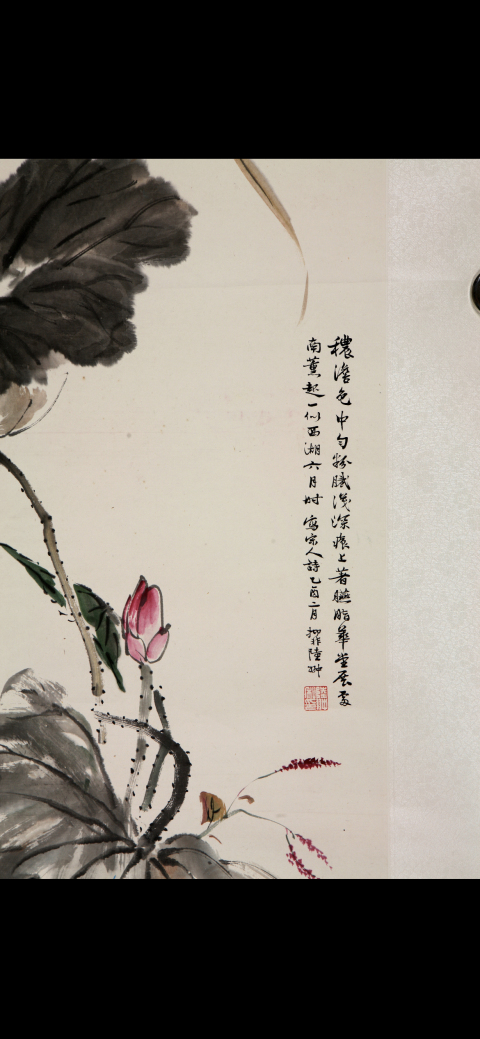 穠澹色中勻粉膩淺深痕上著臙脂華堂展處
南薰起一似西湖六月時 寫宋人詩乙酉二月 抑非陸翀